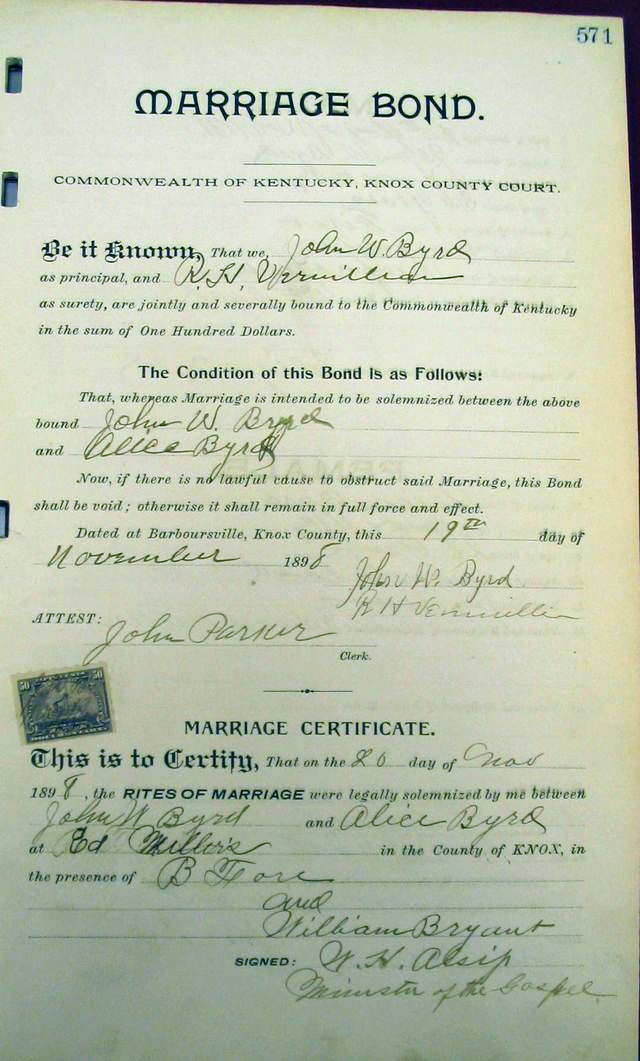 571
MARRIAGE BOND.
COMMONWEALTH OF KENTUCKY, KNOX COUNTY COURT.
Be it Known, That we, John W. Byrd
as principal, and R. H. Vermillion
as surety, are jointly and severally bound to the Commonwealth of Kentucky
in the sum of One Hundred Dollars.
The Condition of this Bond Is as Follows:
That, whereas Marriage is intended to be solemnized between the above
bound John W. Byrd
and Alice Byrd
Now, if there is no lawful cause to obstruct said Marriage, this Bond
shall be void; otherwise it shall remain in full force and effect.
Dated at Barboursville, Knox County, this 19th day of
November 1898
John W. Byrd
R H Vermillion
ATTEST:
John Parker
Clerk.
50 50
MARRIAGE CERTIFICATE.
This is to Certify, That on the 20 day of Nov
1898, the RITES OF MARRIAGE were legally solemnized by me between
John W Byrd and Alice Byrd
at Ed Miller's in the County of KNOX, in
the presence of B
and
William Bryant
SIGNED: W. H. Alsip
Minister of the Gospel